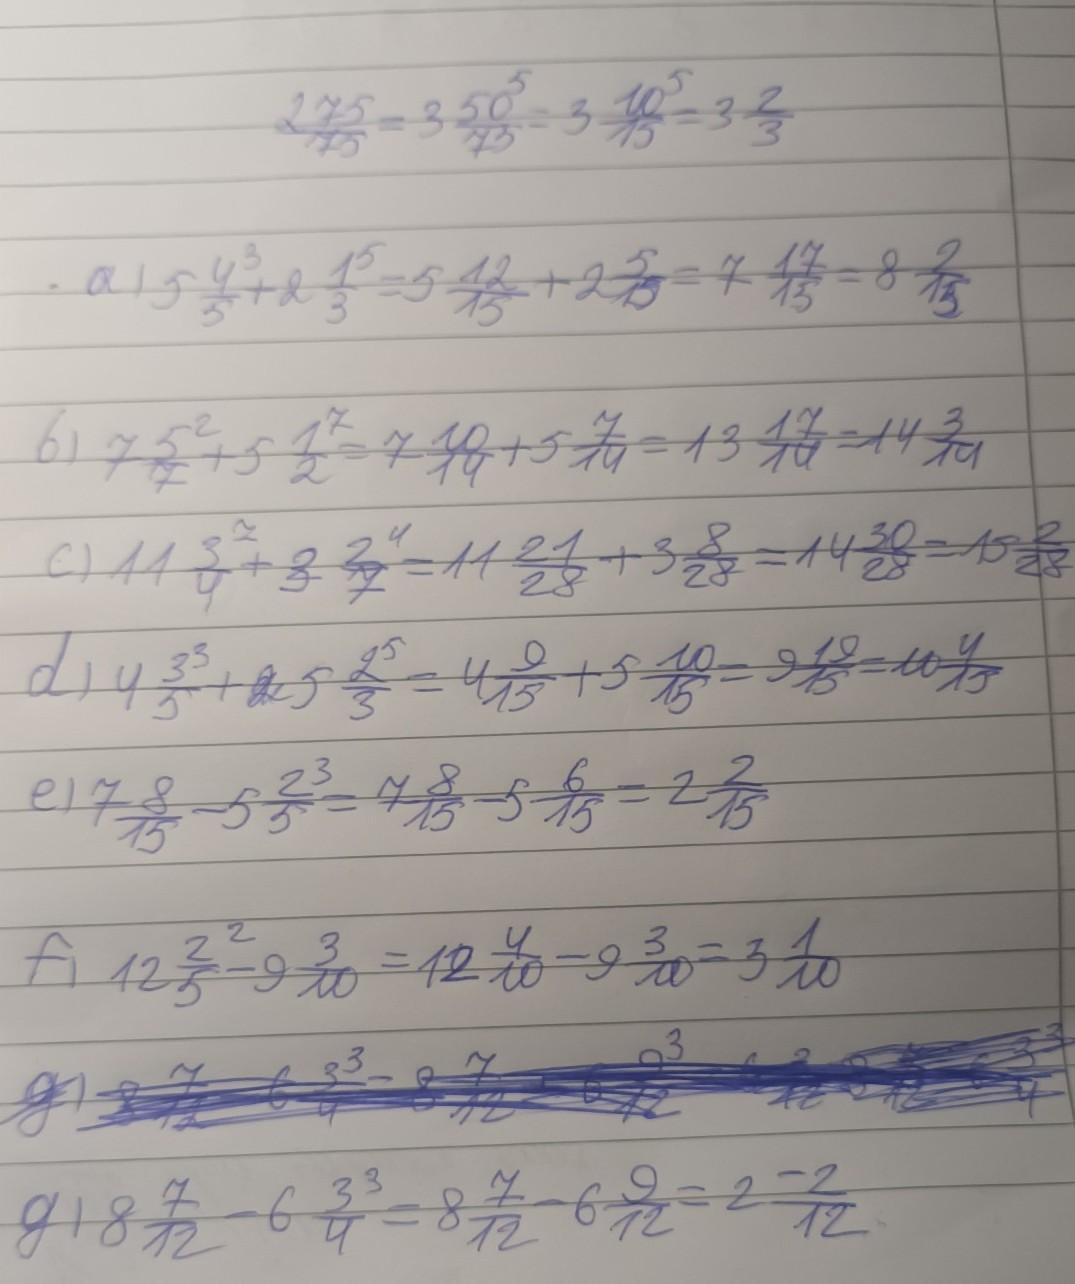 275/75 = 3 50/75 ⁵ = 3 10/15 ⁵ = 3 2/3
a) 5 4/5 ³ + 2 1/3 ⁵ = 5 12/15 + 2 5/15 = 7 17/15 = 8 2/15
b) 7 5/7 ² + 5 1/2 ⁷ = 7 10/14 + 5 7/14 = 13 17/14 = 14 3/14
c) 11 3/4 ⁷ + 3 2/7 ⁴ = 11 21/28 + 3 8/28 = 14 30/28 = 15 2/28
d) 4 3/5 ³ + 5 2/3 ⁵ = 4 9/15 + 5 10/15 = 9 19/15 = 10 4/15
e) 7 8/15 - 5 2/5 ³ = 7 8/15 - 5 6/15 = 2 2/15
f) 12 2/5 ² - 9 3/10 = 12 4/10 - 9 3/10 = 3 1/10
g)
g) 8 7/12 - 6 3/4 ³ = 8 7/12 - 6 9/12 = 2 -2/12